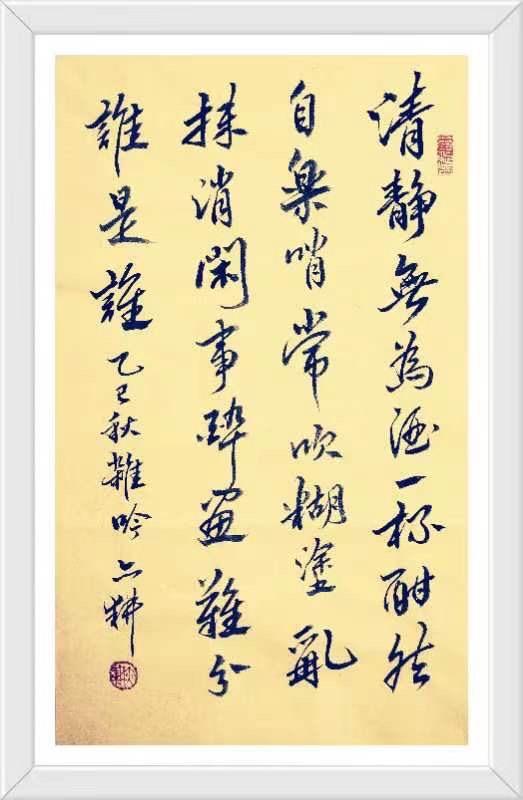 清靜無為酒一杯酣然
自樂哨常吹糊塗亂
抹消閑事醉畫難分
誰是誰
乙巳秋雜吟